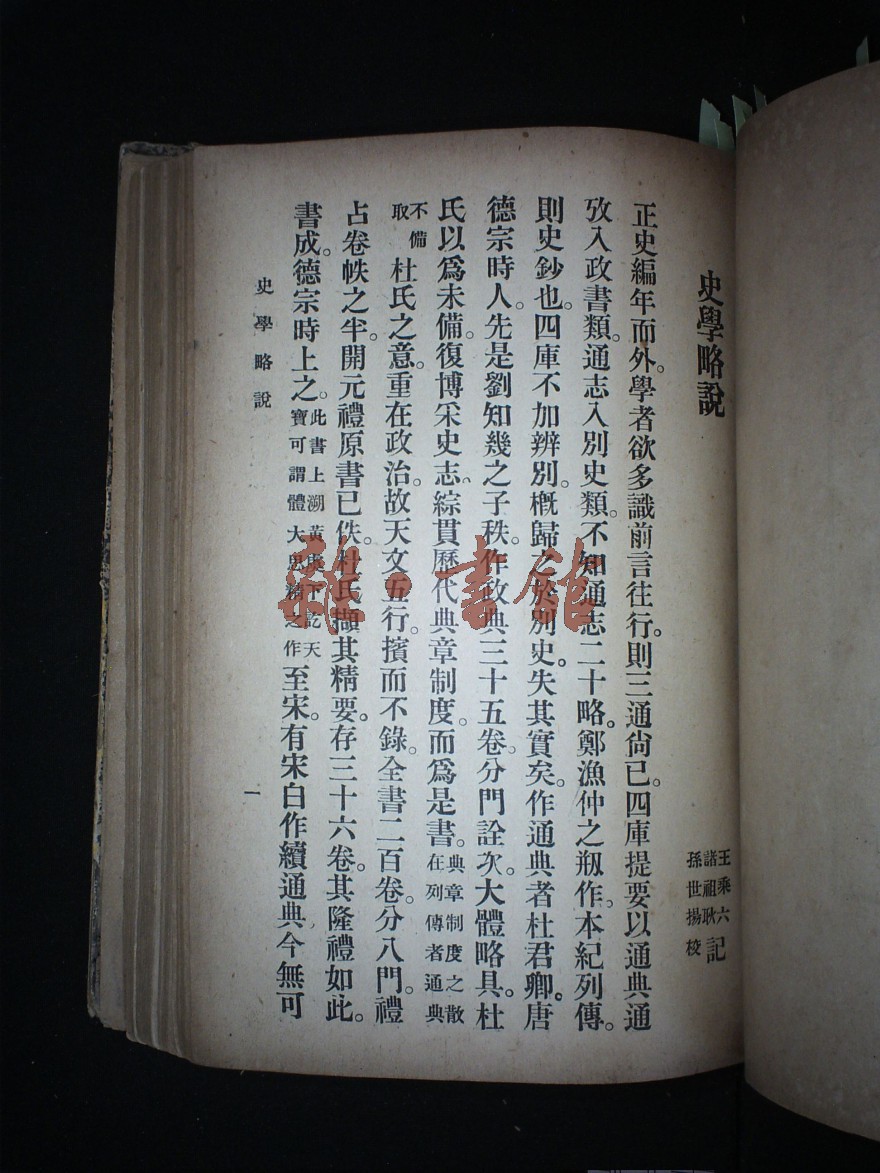 史學略說
王乘六
諸祖耿 記
孫世揚 校
正史編年而外。學者欲多識前言往行。則三通尙已。四庫提要以通典通
攷入政書類。通志入別史類。不知通志二十略。鄭漁仲之剏作。本紀列傳。
則史鈔也。四庫不加辨別。槪歸之於別史。失其實矣。作通典者杜君卿。唐
德宗時人。先是劉知幾之子秩。作政典三十五卷。分門詮次。大體略具。杜
氏以爲未備。復博采史志、綜貫歷代典章制度。而爲是書。典章制度之散在列傳者通典
不備取 杜氏之意。重在政治。故天文五行。擯而不錄。全書二百卷。分八門。禮
占卷帙之半。開元禮原書已佚。杜氏擷其精要。存三十六卷。其隆禮如此。
書成。德宗時上之。此書上溯黃虞下訖天寶可謂體大思精之作 至宋。有宋白作續通典今無可
史學略說
一
雜·書館